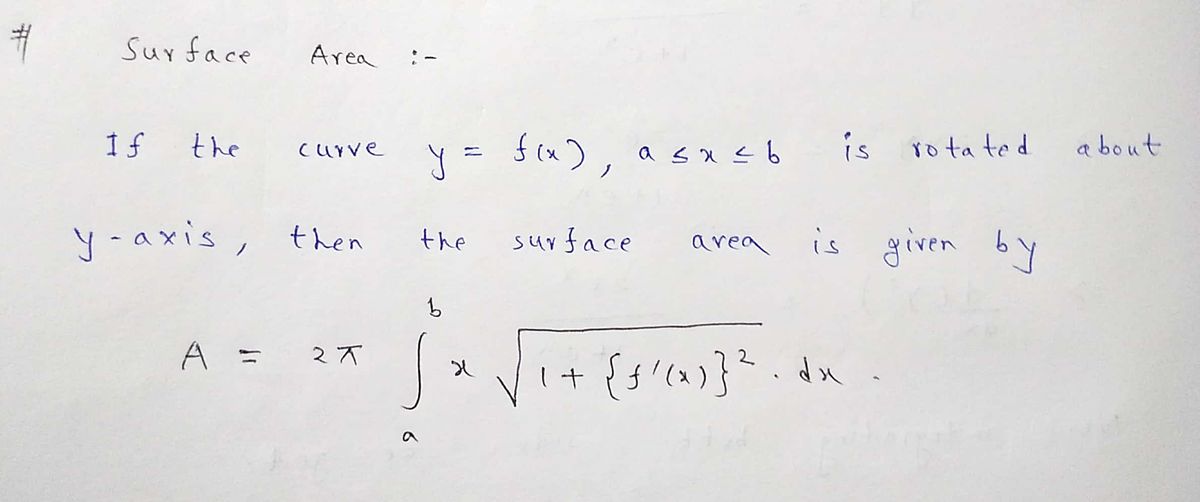 # Surface Area :-
If the curve y = f(x), a ≤ x ≤ b is rotated about
y-axis, then the surface area is given by
A = 2π ∫_a^b x √(1 + {f'(x)}²) . dx .